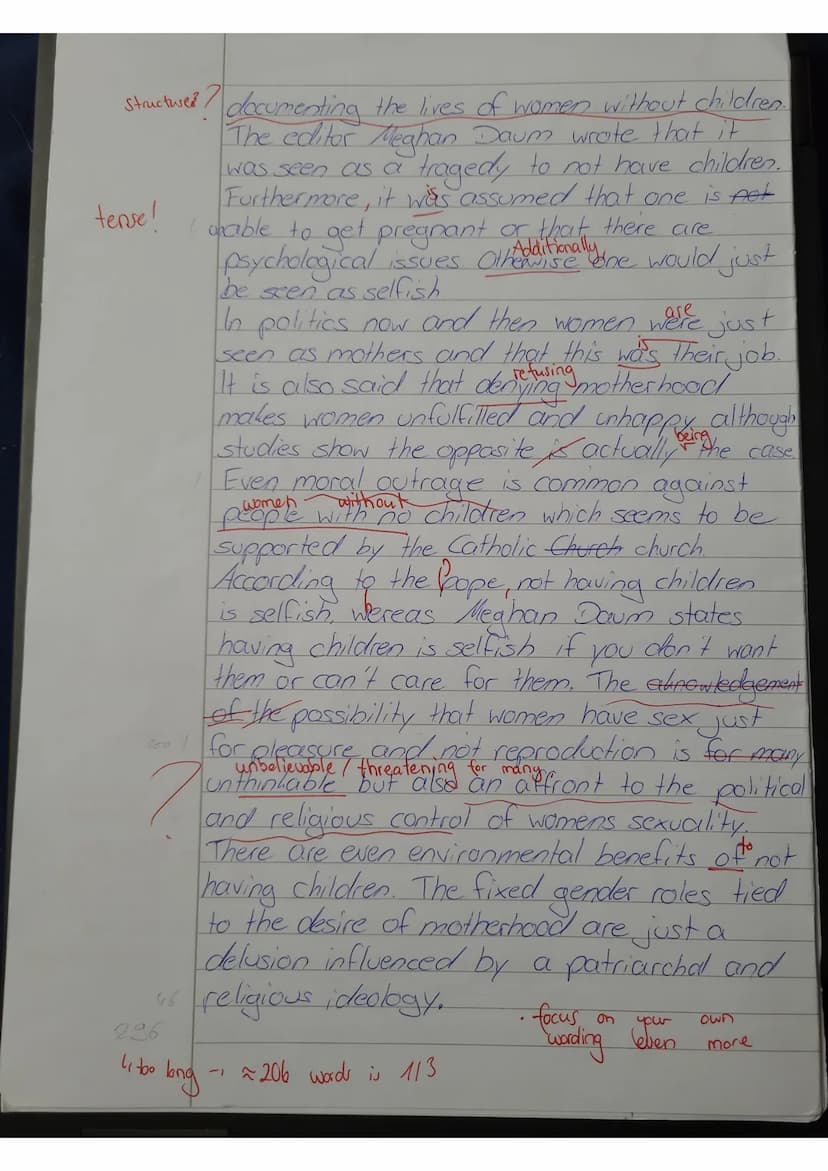 structured? documenting the lives of women without children.
The editor Meghan Daum wrote that it
was seen as a tragedy to not have children.
Furthermore, it was assumed that one is not
tense!
unable to get pregnant or that there are
Additionally
psychological issues. Otherwise one would just
be seen as selfish
are
In politics now and then women were just
is
seen as mothers and that this was their job.
refusing
It is also said that denying motherhood
makes women unfulfilled and unhappy although
being
studies show the opposite is actually the case
Even moral outrage is common against
women without
people with no children which seems to be
supported by the Catholic Church church
According to the Pope, not having children
is selfish, wereas Meghan Daum states
having children is selfish if you don't want
them or can't care for them. The aknowledgement
of the possibility that women have sex just
for pleasure and not reproduction is for many
unbelievable / threatening for many
? unthinkable but also an affront to the political
and religious control of womens sexuality.
to
There are even environmental benefits of not
having children. The fixed gender roles tied
to the desire of motherhood are just a
delusion influenced by a patriarchal and
46 religious ideology.
296
• focus on your own
wording even more
↳ too long → ≈ 206 words is 1/3